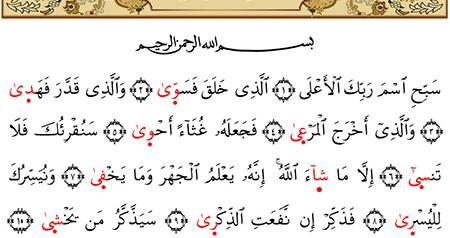 بسم الله الرحمن الرحيم
سَبِّحِ ٱسْمَ رَبِّكَ ٱلْأَعْلَى ﴿١﴾ ٱلَّذِى خَلَقَ فَسَوَّىٰ ﴿٢﴾ وَٱلَّذِى قَدَّرَ فَهَدَىٰ
﴿٣﴾ وَٱلَّذِىٓ أَخْرَجَ ٱلْمَرْعَىٰ ﴿٤﴾ فَجَعَلَهُۥ غُثَآءً أَحْوَىٰ ﴿٥﴾ سَنُقْرِئُكَ فَلَا
تَنسَىٰٓ ﴿٦﴾ إِلَّا مَا شَآءَ ٱللَّهُ ۚ إِنَّهُۥ يَعْلَمُ ٱلْجَهْرَ وَمَا يَخْفَىٰ ﴿٧﴾ وَنُيَسِّرُكَ
لِلْيُسْرَىٰ ﴿٨﴾ فَذَكِّرْ إِن نَّفَعَتِ ٱلذِّكْرَىٰ ﴿٩﴾ سَيَذَّكَّرُ مَن يَخْشَىٰ ﴿١٠﴾